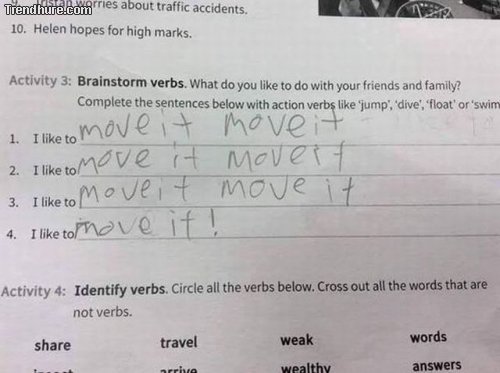 Trendhure.com
worries about traffic accidents.
10. Helen hopes for high marks.
Activity 3: Brainstorm verbs. What do you like to do with your friends and family?
Complete the sentences below with action verbs like 'jump', 'dive', 'float' or 'swim
1. I like to move it move it
2. I like to move it move it
3. I like to move it move it
4. I like to move it!
Activity 4: Identify verbs. Circle all the verbs below. Cross out all the words that are
not verbs.
share travel weak words
arrive wealthy answers